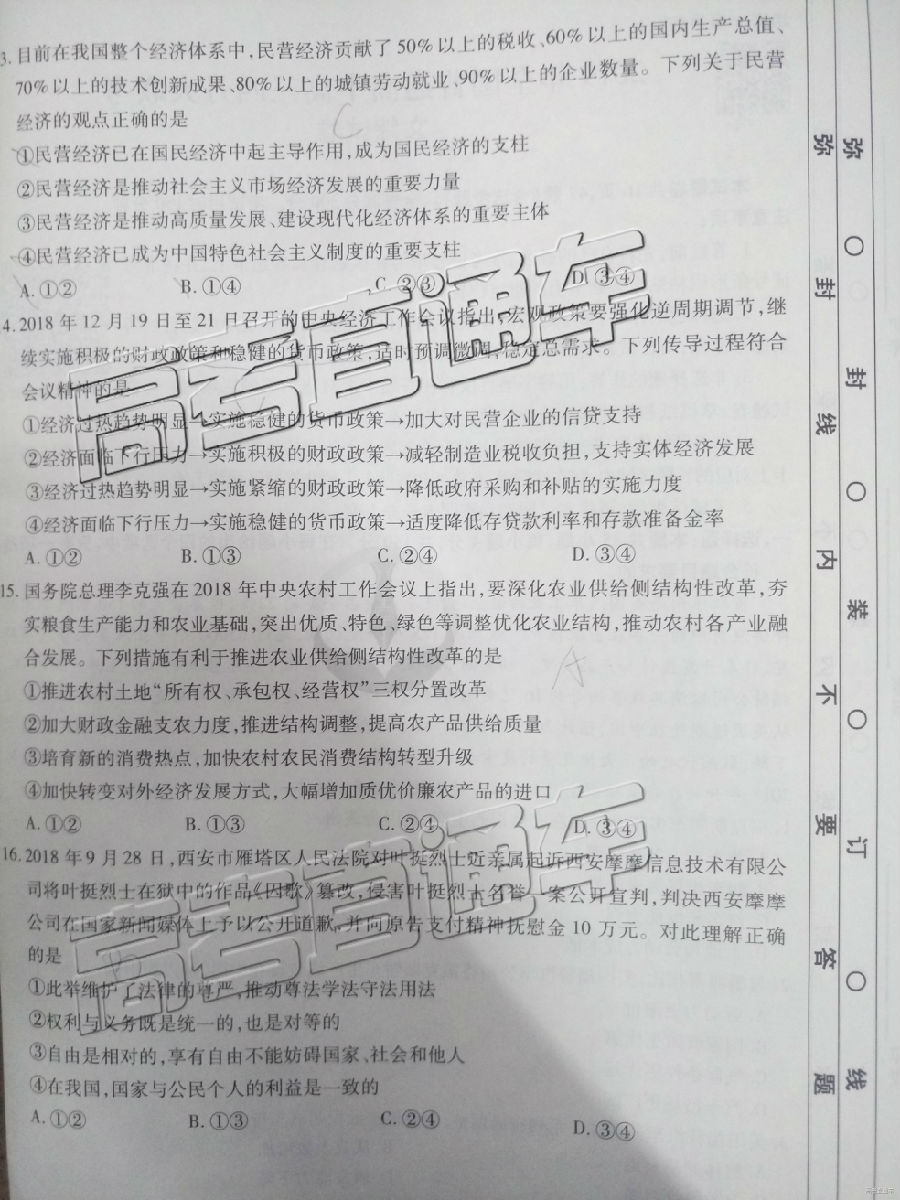 3.目前在我国整个经济体系中,民营经济贡献了50%以上的税收、60%以上的国内生产总值、
70%以上的技术创新成果、80%以上的城镇劳动就业、90%以上的企业数量。下列关于民营
经济的观点正确的是
C
①民营经济已在国民经济中起主导作用,成为国民经济的支柱
②民营经济是推动社会主义市场经济发展的重要力量
③民营经济是推动高质量发展、建设现代化经济体系的重要主体
④民营经济已成为中国特色社会主义制度的重要支柱
A.①② B.①④ C.②③ D.③④
4.2018年12月19日至21日召开的中央经济工作会议指出,宏观政策要强化逆周期调节,继
续实施积极的财政政策和稳健的货币政策,适时预调微调,稳定总需求。下列传导过程符合
会议精神的是
①经济过热趋势明显→实施稳健的货币政策→加大对民营企业的信贷支持
②经济面临下行压力→实施积极的财政政策→减轻制造业税收负担,支持实体经济发展
③经济过热趋势明显→实施紧缩的财政政策→降低政府采购和补贴的实施力度
④经济面临下行压力→实施稳健的货币政策→适度降低存贷款利率和存款准备金率
A.①② B.①③ C.②④ D.③④
15.国务院总理李克强在2018年中央农村工作会议上指出,要深化农业供给侧结构性改革,夯
实粮食生产能力和农业基础,突出优质、特色、绿色等调整优化农业结构,推动农村各产业融
合发展。下列措施有利于推进农业供给侧结构性改革的是
A
①推进农村土地“所有权、承包权、经营权”三权分置改革
②加大财政金融支农力度,推进结构调整,提高农产品供给质量
③培育新的消费热点,加快农村农民消费结构转型升级
④加快转变对外经济发展方式,大幅增加质优价廉农产品的进口
A.①② B.①③ C.②④ D.③④
16.2018年9月28日,西安市雁塔区人民法院对叶挺烈士近亲属起诉西安摩摩信息技术有限公
司将叶挺烈士在狱中的作品《囚歌》篡改,侵害叶挺烈士名誉一案公开宣判,判决西安摩摩
公司在国家新闻媒体上予以公开道歉,并向原告支付精神抚慰金10万元。对此理解正确
的是
①此举维护了法律的尊严,推动尊法学法守法用法
②权利与义务既是统一的,也是对等的
③自由是相对的,享有自由不能妨碍国家、社会和他人
④在我国,国家与公民个人的利益是一致的
A.①② B.①③ C.②④ D.③④
高考直通车
高考直通车
弥封线内不要答题
弥封装订线